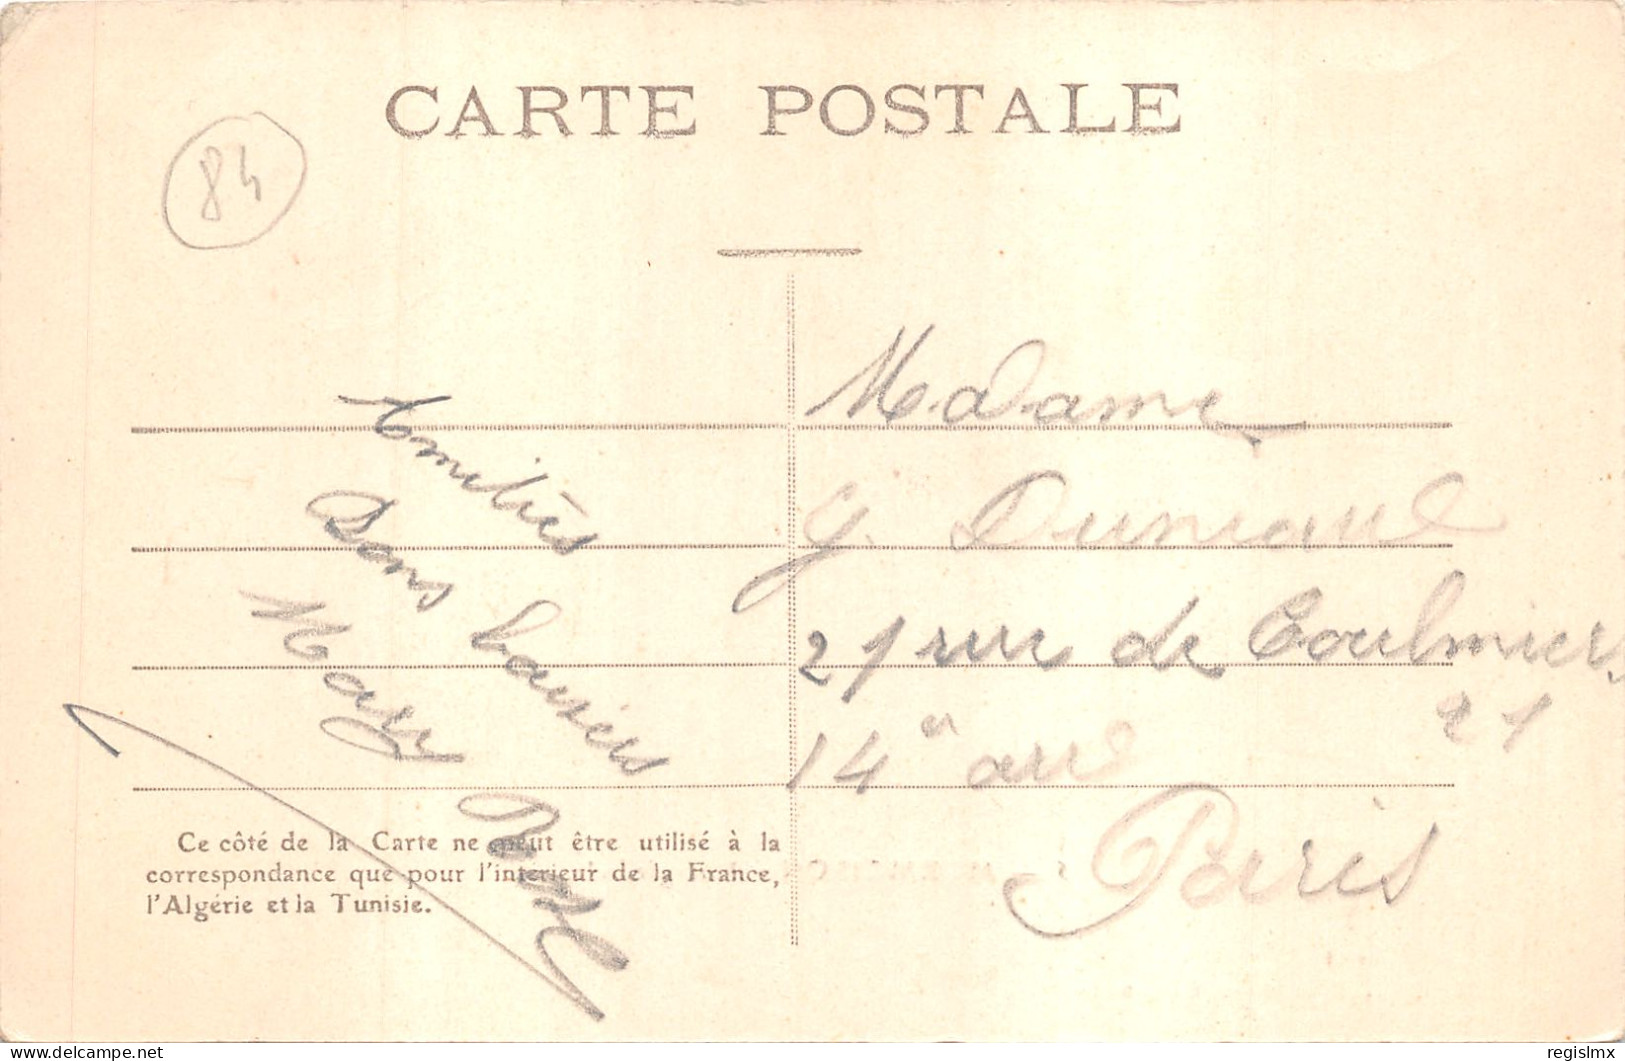 CARTE POSTALE
84
Amitiés
Bons baisers
Madame
G.
21 rue de Coulmiers
21
14e arr
Paris
Ce côté de la Carte ne peut être utilisé à la
correspondance que pour l'intérieur de la France,
l'Algérie et la Tunisie.
delcampe.net
regislmx